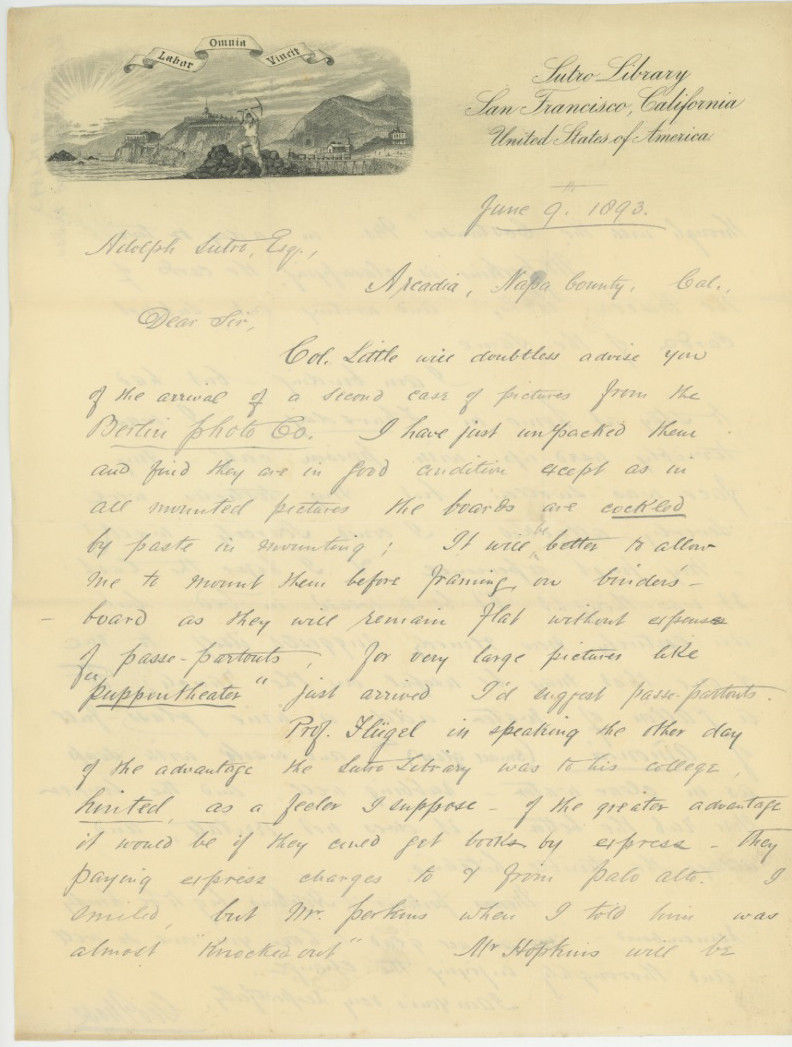 Labor Omnia Vincit
Sutro Library
San Francisco, California
United States of America
June 9th. 1893.
Adolph Sutro, Esq.,
Arcadia, Napa County, Cal.,
Dear Sir,
Col. Little will doubtless advise you
of the arrival of a second case of pictures from the
Berlin Photo Co. I have just unpacked them
and find they are in good condition except as in
all mounted pictures the boards are cockled
by paste in mounting; It will be better to allow
me to mount them before framing on binders'-
board as they will remain flat without expense
of passe-partouts, for very large pictures like
"puppentheater" just arrived I'd suggest passe-partouts.
Prof. Flügel in speaking the other day
of the advantage the Sutro Library was to his college,
hinted, as a feeler I suppose - of the greater advantage
it would be if they could get books by express - they
paying express charges to & from Palo alto. I
smiled, but Mr. Perkins when I told him was
almost "Knocked out" Mr Hopkins will be